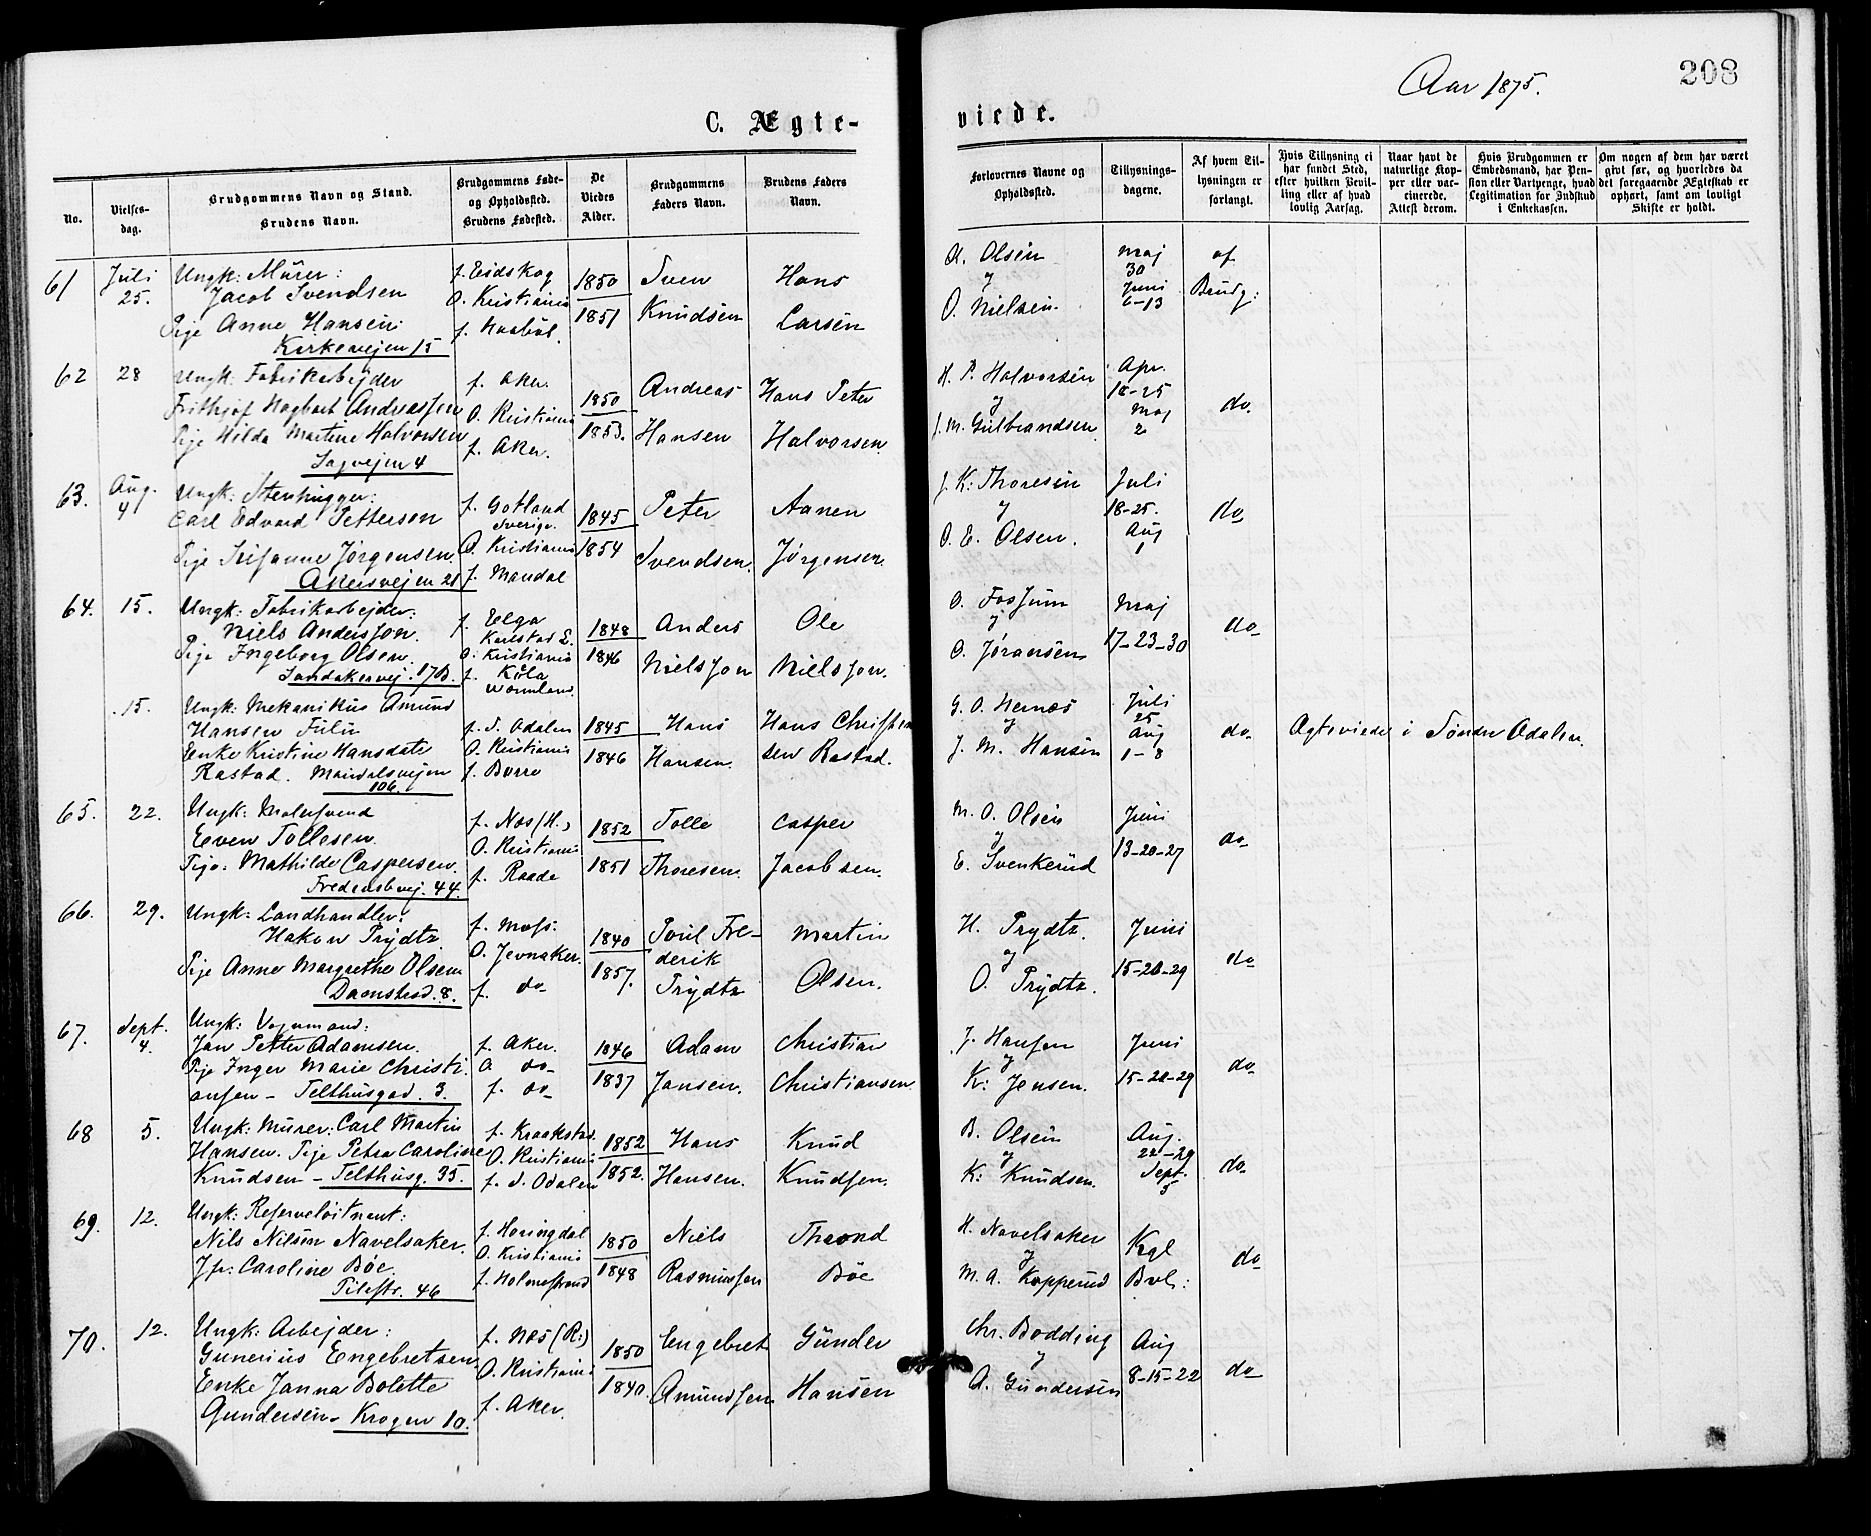 Aar 1875.
208
C. Ægte-
viede.
No.
Vielses-
dag.
Brudgommens Navn og Stand.
Brudens Navn.
Brudgommens Føde-
og Opholdssted.
Brudens Fødested.
De
Viedes
Alder.
Brudgommens
Faders Navn.
Brudens Faders
Navn.
Forlovernes Navne og
Opholdssted.
Tillysnings-
dagene.
Af hvem Til-
lysningen er
forlangt.
Hvis Tillysning ei
har fundet Sted,
efter hvilken Bevil-
ling eller af hvad
lovlig Aarsag.
Naar havt de
naturlige Kop-
per eller vac-
cinerede.
Attest derom.
Hvis Brudgommen er
Embedsmand, har Pen-
sion eller Vartpenge, hvad
Legitimation for Indskud
i Enkekassen.
Om nogen af dem har været
givt før, og hvorledes da
det foregaaende Ægteskab er
ophørt, samt om lovligt
Skifte er holdt.
61 Juli 25. Ungk: Murer:
Jacob Svendsen
Pige Anne Hansen:
Kirkevejen 15
f. Eidskog
O. Kristiania
1850
1851
Sven
Knudsen
Hans
Larsen
O. Nielsen
Maj
30
Juni
6-13
af
Brudg:
62 28 Ungk: Fabrikarbejder
Frithjof Hagbart Andreassen
Pige Hilda Martine Halvorsen
Sagvejen 4
f. Aker.
O. Kristiania
f. Aker.
1850
1853.
Andreas
Hansen
Hans Peter
Halvorsen
H. P. Halvorsen
J. M. Gulbrandsen
Apr.
18-25
Maj
2
do.
63. Aug. 4 Ungk: Stenhugger:
Carl Edvard Petterson
Pige Susanne Jørgensen.
Akersvejen 21
f. Gotland
Sverige.
O. Kristiania
f. Mandal
1845
1854
Peter
Svendsen
Aanen
Jørgensen
J. K. Thoresen
O. E. Olsen.
Juli
18-25.
Aug
1
do
64. 15. Ungk: Fabrikarbejder:
Niels Andersson.
Pige Ingeborg Olsen
Sandakervej. 17B.
f. Elga
Karlstad L.
O. Kristiania
f. Kôla
Wermland.
1848
1846
Anders
Nielsson
Ole
Nielsson.
O. Fossum
O. Jøransen
Maj
17-23-30
do
15. Ungk: Mekanikus Amund
Hansen Fulu
Enke Kristine Hansdatr
Rastad. Maridalsvejen
106.
f. S. Odalen
O. Kristiania
f. Borre
1845
1846
Hans
Hansen.
Hans Christen
sen Rastad.
G. O. Hernæs
J. M. Hansen
Juli
25
Aug
1-8
do
Ægteviede i Søndre Odalen.
65. 22. Ungk: Malersvend
Even Tollesen.
Pige: Mathilde Caspersen.
Fredensbvej. 44.
f. Næs (H.)
O. Kristiania
f. Raade
1852
1851
Tolle
Thoresen.
Casper
Jacobsen.
M. O. Olsen
E. Svenkerud
Juni
13-20-27
do
66. 29. Ungk: Landhandler:
Hakon Prydtz
Pige Anne Margrethe Olsen
Damstred. 8.
f. Moss.
O. Jevnaker.
f. do
1840
1857.
Poul Fre-
derik
Prydtz
Martin
Olsen.
H. Prydtz
O. Prydtz.
Juni
15-20-29
do
67. Sept. 4. Ungk: Vognmand:
Jan Petter Adamsen.
Pige Inger Marie Christi.
ansen - Telthusgad. 3.
f. Aker.
O do
f. do
1846
1837
Adam
Jansen.
Christian
Christiansen
J. Hansen
K: Jensen.
Juni
15-20-29
do
68 5. Ungk: Murer: Carl Martin
Hansen. Pige Petra Caroline
Knudsen - Telthusg. 35.
f. Kraakstad
O. Kristiania
f. S. Odalen
1852
1852.
Hans
Hansen.
Knud
Knudsen.
B. Olsen
K: Knudsen.
Aug.
22-29
Sept.
5
do
69. 12. Ungk: Reserveløitnant:
Nils Nilsen Navelsaker.
Jfr: Caroline Bøe.
Pilestr. 46
O. Kristiania
f. Holmestrand
1850
1848
Niels
Rasmussen
Thrond
Bøe
H. Navelsaker
M. A. Kopperud
Kgl
Bvl:
do
70. 12. Ungk: Arbejder:
Gunerius Engebretsen
Enke Janna Bolette
Gundersen - Krogen 10.
f. Næs (R.)
O. Kristiania
f. Aker.
1850
1840.
Engebret
Amundsen
Gunder
Hansen
Chr. Bodding
A. Gundersen
Aug
8-15-22
do